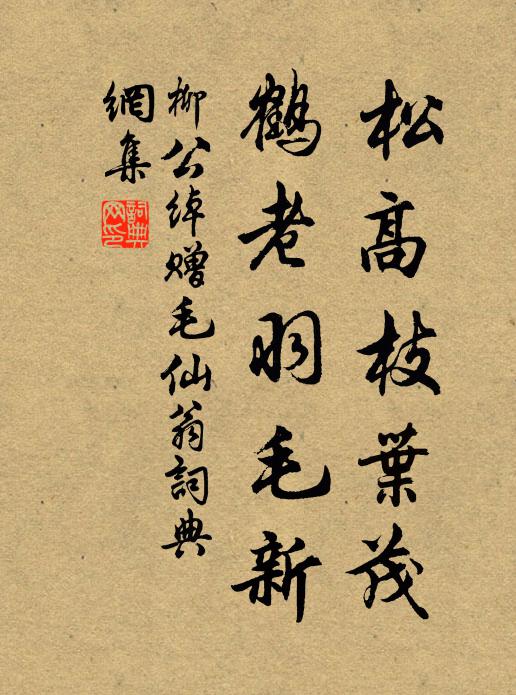 松高枝葉茂
鶴老羽毛新
柳公綽贈毛仙翁詞典
網集
詞典網印